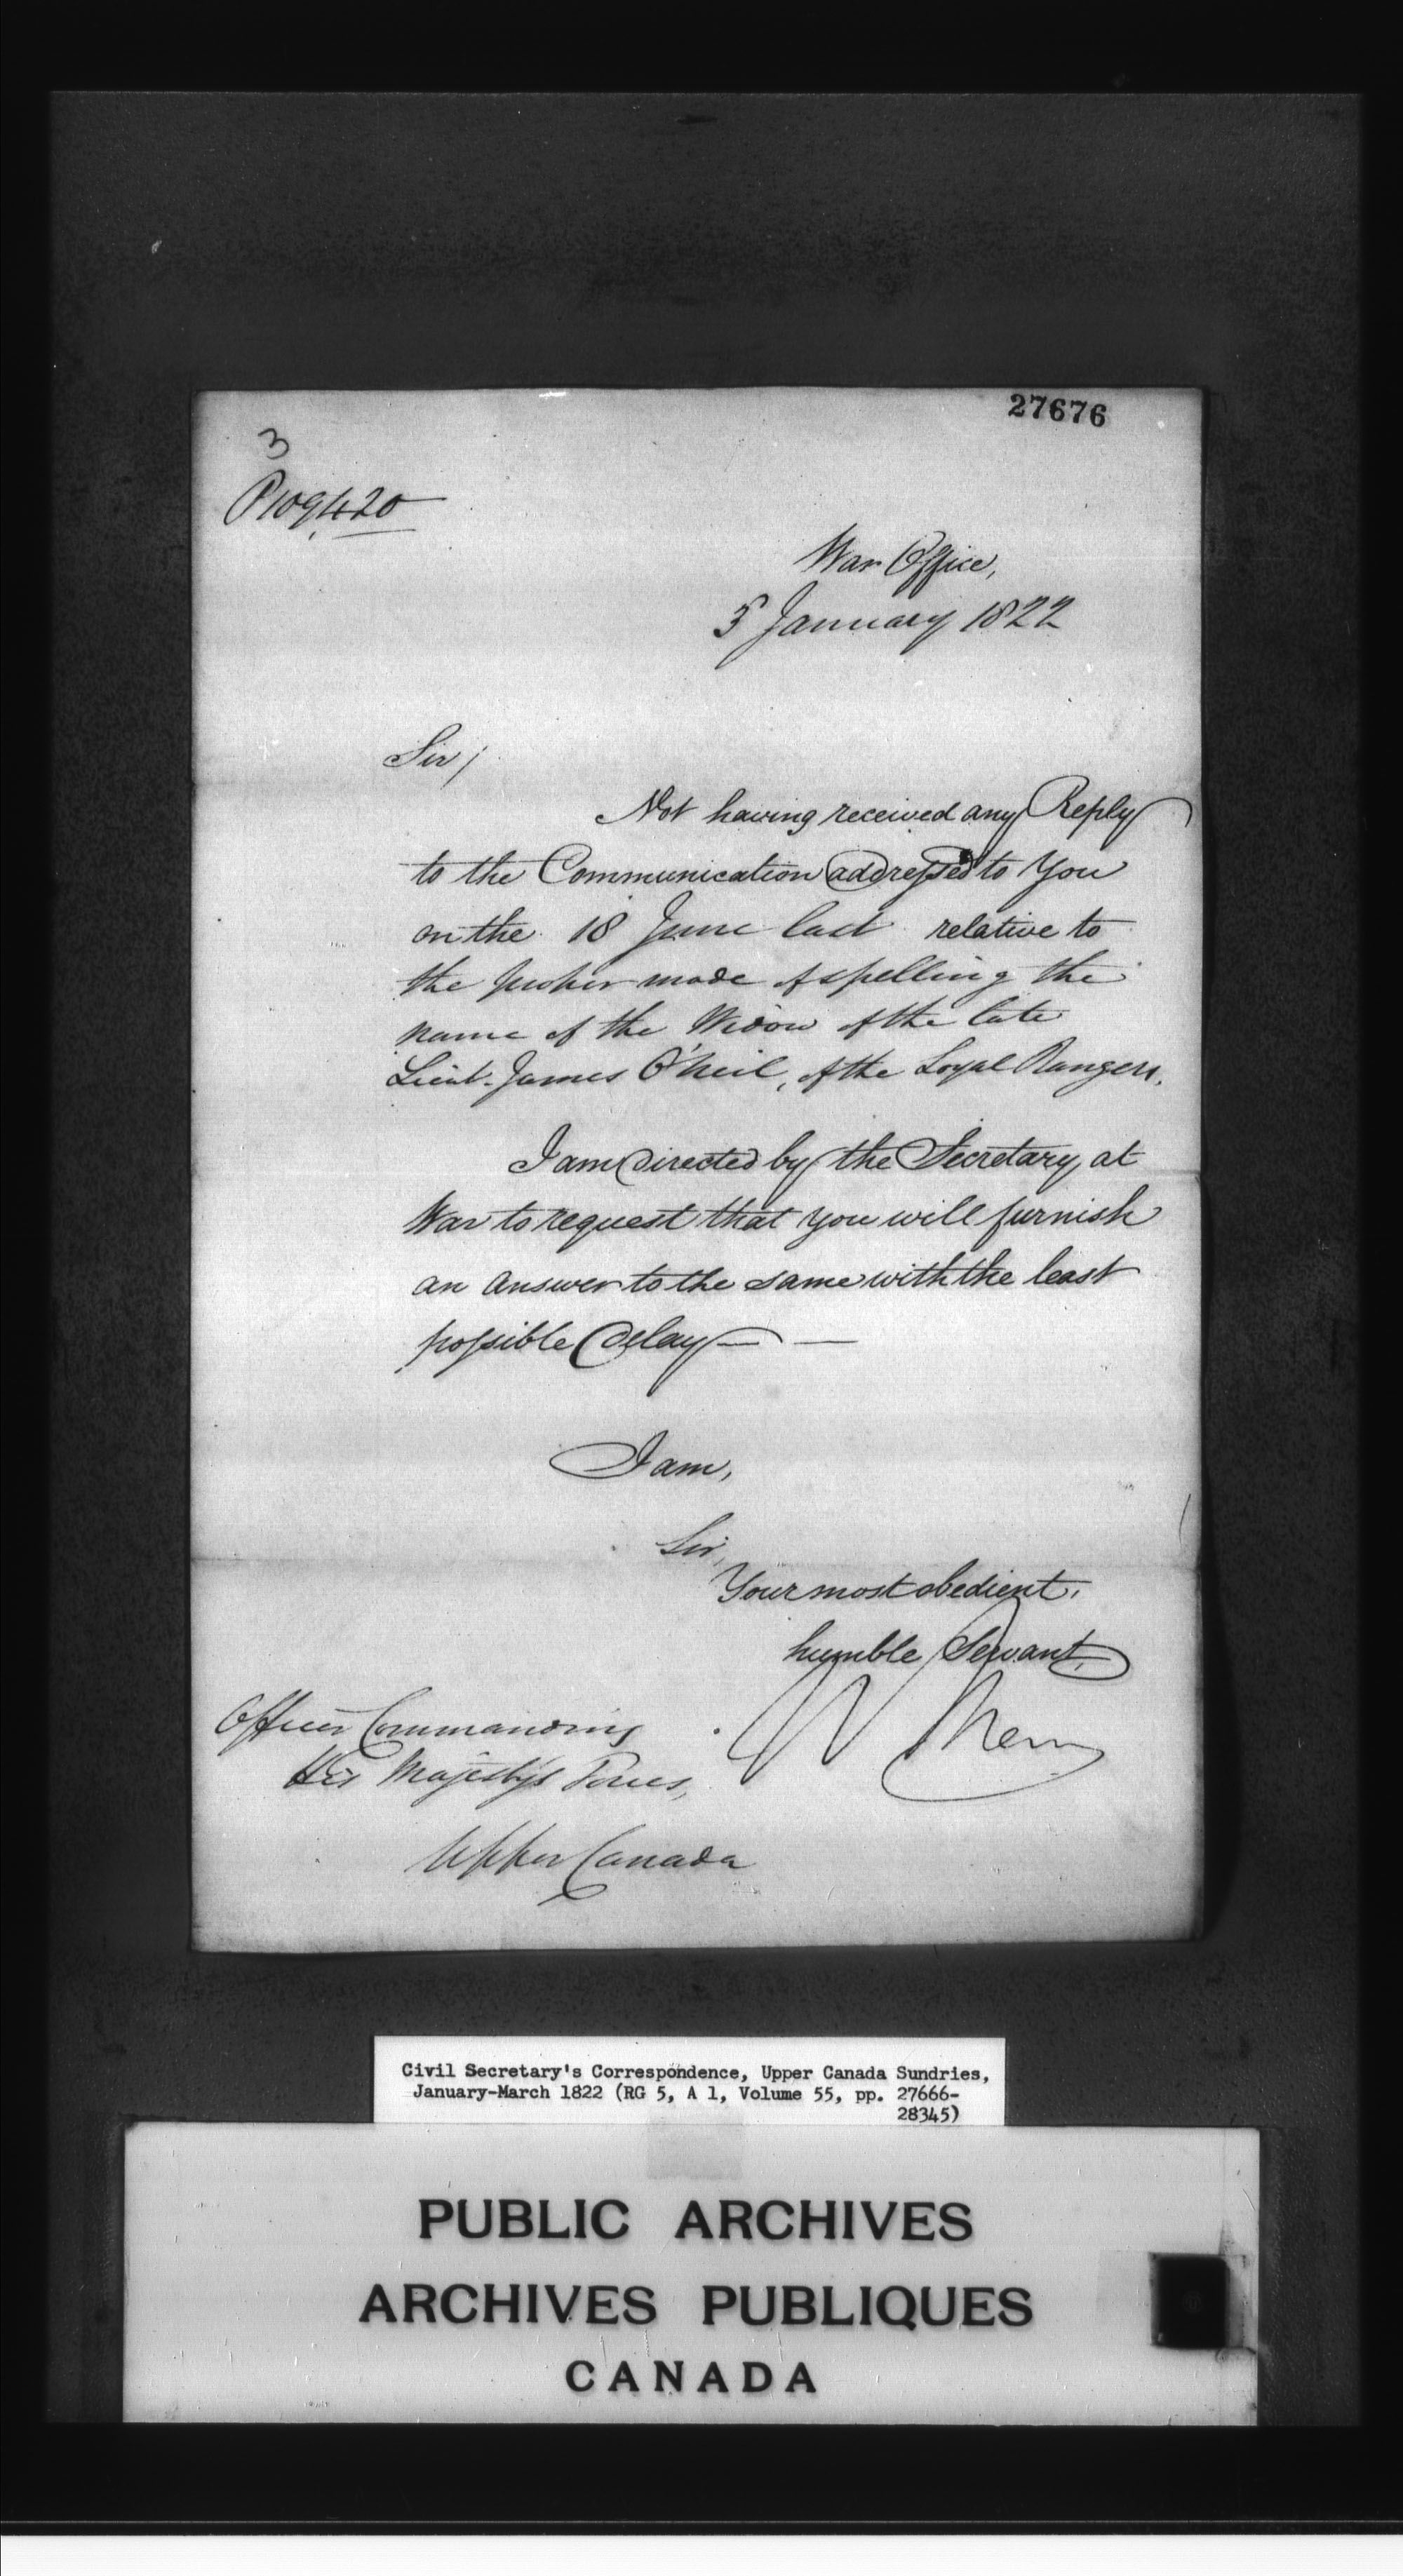 27676
3
P109,420
War Office,
5 January 1822
Sir/
Not having received any Reply
to the Communication addressed to You
on the 18 June last relative to
the proper mode of spelling the
name of the Widow of the late
Lieut. James O'Neil, of the Loyal Rangers,
I am directed by the Secretary at
War to request that you will furnish
an answer to the same with the least
possible delay —
I am,
Sir,
Your most obedient,
humble Servant,
Officer Commanding
His Majesty's Forces,
Upper Canada
Civil Secretary's Correspondence, Upper Canada Sundries,
January-March 1822 (RG 5, A 1, Volume 55, pp. 27666-
28345)
PUBLIC ARCHIVES
ARCHIVES PUBLIQUES
CANADA